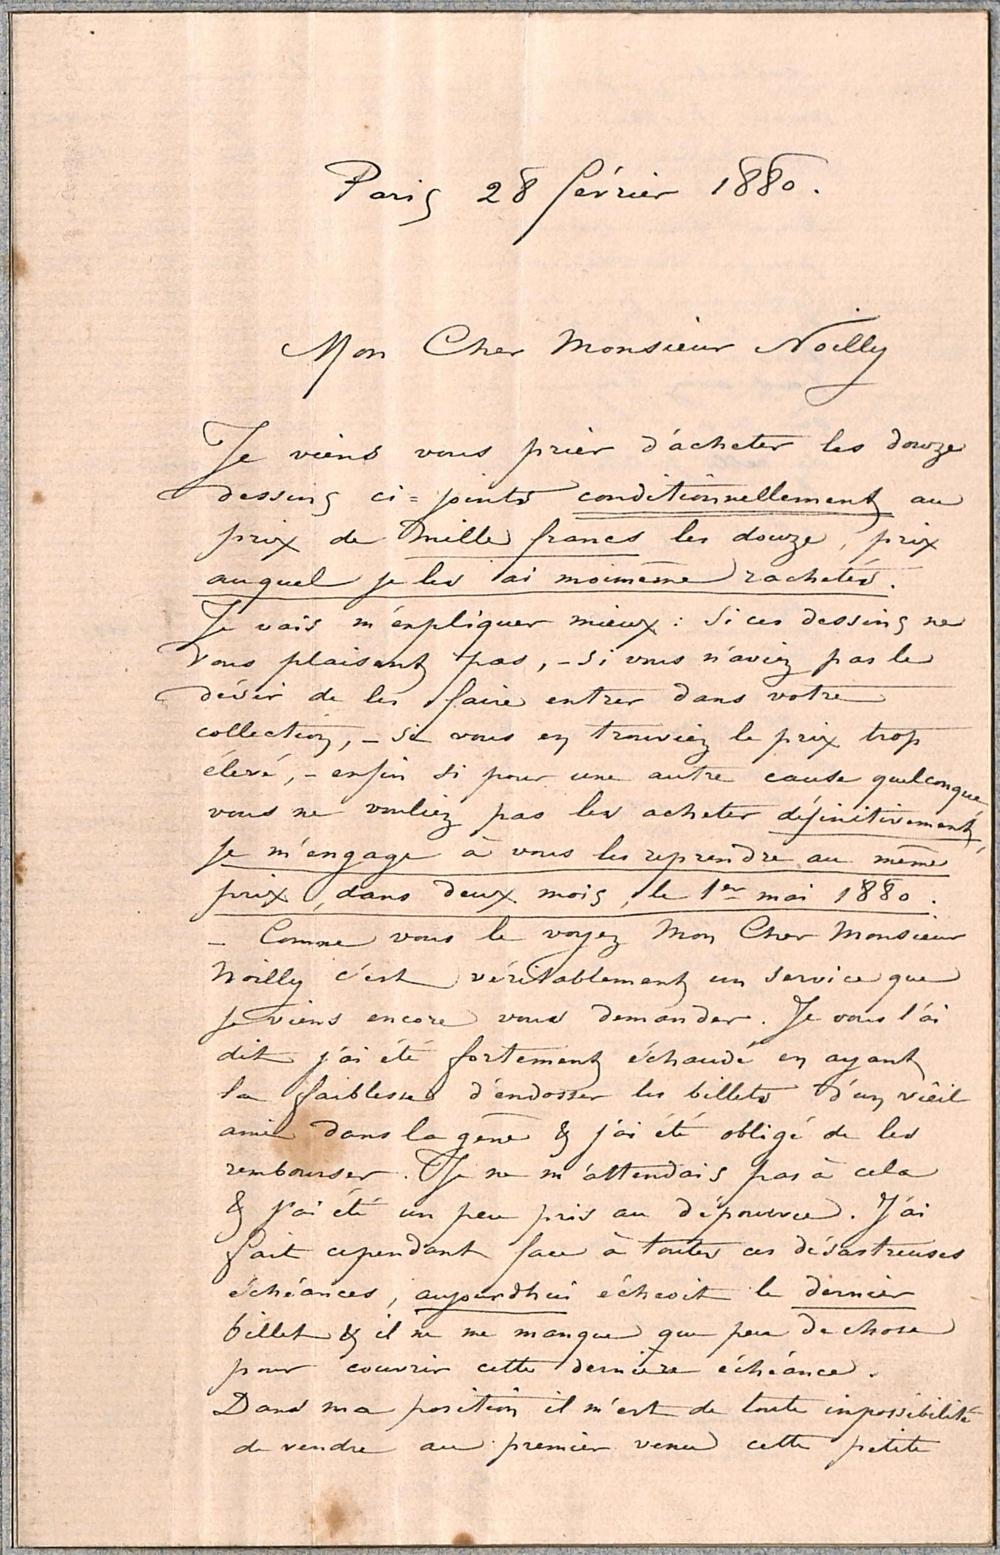 Paris 28 février 1880.
Mon Cher Monsieur Noilly
Je viens vous prier d'acheter les douze
dessins ci=joints conditionnellement au
prix de mille francs les douze, prix
auquel je les ai moimême rachetés.
Je vais m'expliquer mieux : Si ces dessins ne
vous plaisent pas, – Si vous n'aviez pas le
désir de les faire entrer dans votre
collection, – Si vous en trouviez le prix trop
élevé, – enfin Si pour une autre cause quelconque
vous ne vouliez pas les acheter définitivement,
je m'engage à vous les reprendre au même
prix, dans deux mois, le 1er mai 1880.
– Comme vous le voyez Mon Cher Monsieur
Noilly c'est véritablement un service que
je viens encore vous demander. Je vous l'ai
dit j'ai été fortement échaudé en ayant
la faiblesse d'endosser les billets d'un vieil
ami dans la gène & j'ai été obligé de les
rembourser. Je ne m'attendais pas à cela
& j'ai été un peu pris au dépourvu. J'ai
fait cependant face à toutes ces désastreuses
échéances, aujourdhui échéoit le dernier
billet & il ne me manque que peu de chose
pour couvrir cette dernière échéance.
Dans ma position il m'est de toute impossibilité
de vendre au premier venu cette petite